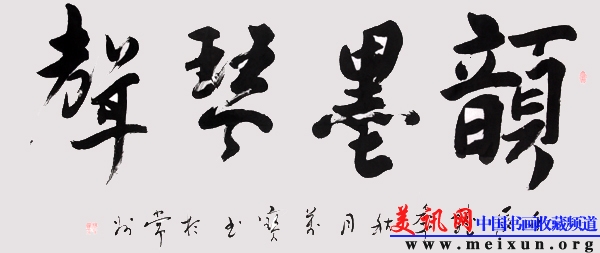 韻墨琴聲
秋月寶於常州
美讯网 中国书画收藏频道
www.meixun.org